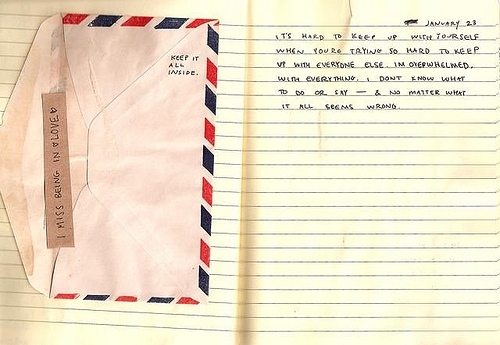 KEEP IT
ALL
INSIDE.
I MISS BEING IN LOVE
JANUARY 23
IT'S HARD TO KEEP UP WITH YOURSELF
WHEN YOU'RE TRYING SO HARD TO KEEP
UP WITH EVERYONE ELSE. I'M OVERWHELMED,
WITH EVERYTHING. I DON'T KNOW WHAT
TO DO OR SAY — & NO MATTER WHAT
IT ALL SEEMS WRONG.